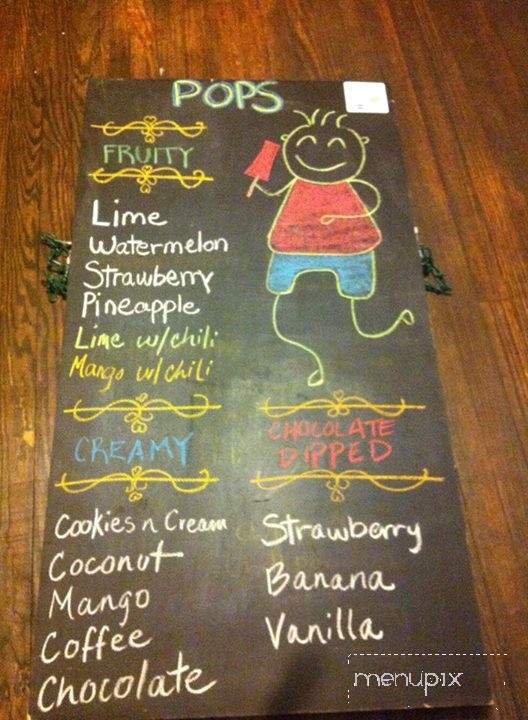 POPS
FRUITY
Lime
Watermelon
Strawberry
Pineapple
Lime w/chili
Mango w/chili
CREAMY
Cookies n Cream
Coconut
Mango
Coffee
Chocolate
CHOCOLATE
DIPPED
Strawberry
Banana
Vanilla
menupix